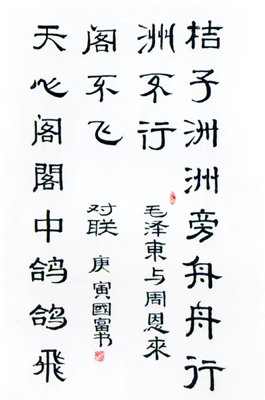 桔子洲洲旁舟舟行
洲不行
天心阁閣中鸽鸽飛
阁不飞
毛泽東与周恩來
对联 庚寅國富书